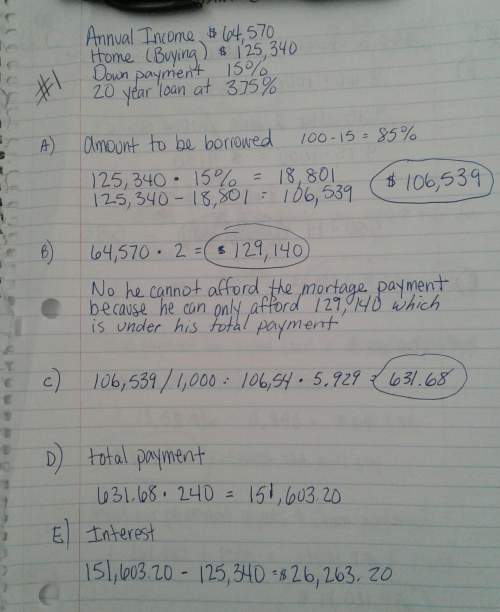 Annual Income $64,570
Home (Buying) $125,340
Down payment 15%
20 year loan at 375%
#1
A) amount to be borrowed 100-15=85%
125,340 · 15% = 18,801
125,340 - 18,801 = 106,539 $106,539
B) 64,570 · 2 = $129,140
No he cannot afford the mortage payment
because he can only afford 129,140 which
is under his total payment
C) 106,539/1,000 = 106,54 · 5.929 = 631.68
D) total payment
631.68 · 240 = 151,603.20
E) Interest
151,603.20 - 125,340 = $26,263.20